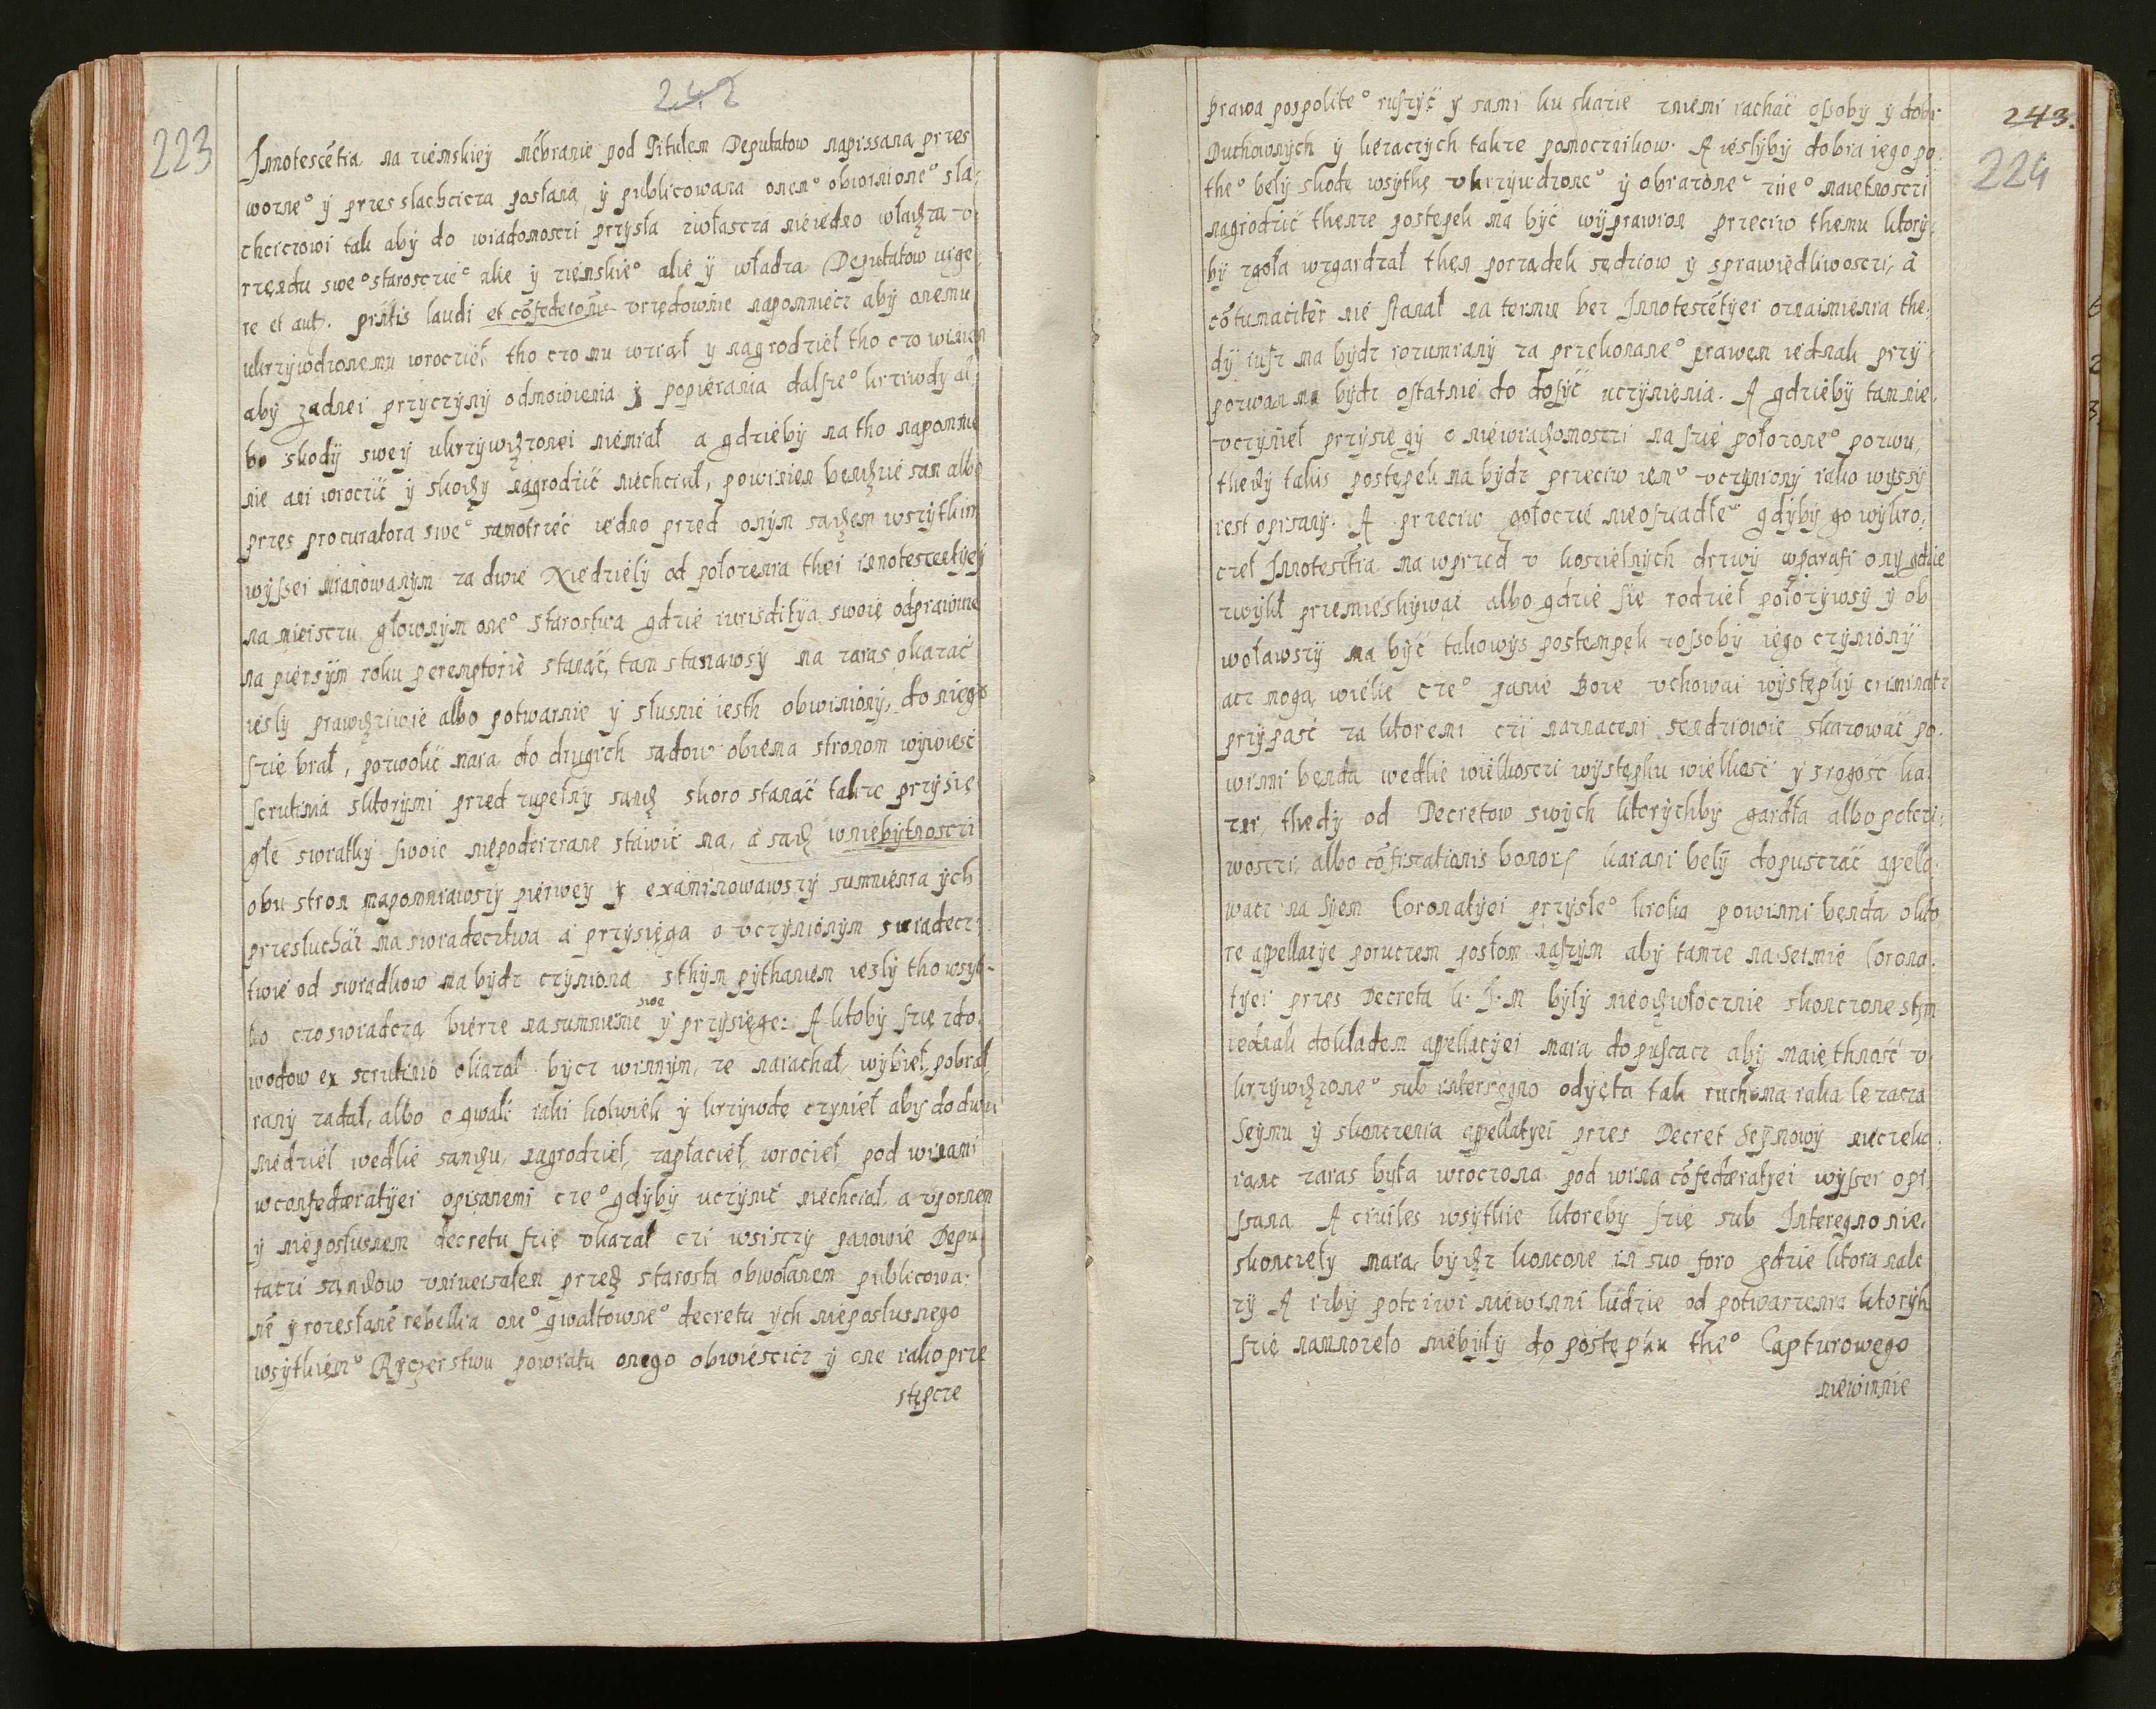 242
223
Innotescẽtia na ziemskieÿ mẽbranie pod Titulem Deputatow napissana przes
wozne° ÿ przes slachcicza poslana, ÿ publicowana onem° obwinione° sla-
chcicowi tak abÿ do wiadomosczi przysła zwłascza nieiedno władza v-
rzendu swe° starosczie° alie ÿ ziemskie° alie ÿ władza Deputatow vige-
re et aut. pñtis laudi et cõfederõis vrzędownie napomniecz abÿ onemu
ukrzÿwdzonemu wroczieł tho czo mu wział ÿ nagrodzieł tho czo winien
abÿ zadnei przÿczynÿ odmowienia ÿ popierania dalsze° krziwdÿ al-
bo skodÿ sweÿ ukrzÿwdzonei niemiał a gdziebÿ na tho napomnie
nie ani wroczić ÿ skodÿ nagrodzić niechciał, powinien bendzie sam albo
przes procuratora swe° samotrzeć iedno przed onÿm sądem wszÿtkim
wÿssei mianowanÿm za dwie Niedzielÿ od położenia thei innotescentijeÿ
na mieisczu głownÿm one° starostwa gdzie iurisditÿa swoię odprawuie
na piersÿm roku peremptorie stanać, tam stanawsÿ na zaraz okazać
iesly prawdziwie albo potwarnie ÿ słusnie iesth obwinionÿ, do niego
szię brał, pozwolić maią do drugich sądow obiema stronom wÿwiesć
scrutinia sktorÿmi przed zupełnÿ sąd skoro stanać takze przÿsię
głe swiatkÿ swoie niepodeirzane stawić ma, a sąd wniebÿtnosczi
obu stron napomniawszÿ pierweÿ ÿ examinowawszÿ sumnienia ÿch
przesłuchać ma swiadecztwa a przÿsięga o vczÿnionÿm swiadecz-
twie od swiadkow ma bÿdz czÿniona sthÿm pÿthaniem iezlÿ tho wsÿt-
ko czo swiadczą bierze na sumnienie swe ÿ przÿsięgę: A ktobÿ szię zdo-
wodow ex scrutinio okazał bÿcz winnÿm, ze naiachał, wÿbieł, pobrał,
ranÿ zadał, albo o gwałt iaki kolwiek ÿ krzÿwdę czÿnieł abÿ do dwu
niedziel wedlie sandu, nagrodzieł, zapłacieł, wrocieł pod winami
wconfedæratÿei opisanemi cze° gdÿbÿ uczÿnić niechciał a vpornem
ÿ nieposłusnem decretu szię vkazał czi wsisczÿ panowie Depu
taczi sandow vniuersałem przed starostą obwołanem publicowa-
nẽ ÿ rozesłanẽ rebellia one° gwałtowne° decretu ÿch nieposłusnego
wsÿtkiem° Rÿczerstwu powiatu onego obwiesczicz ÿ one iako prze
stępcze
243.
224
prawa pospolite° rusżÿć ÿ sami ku skazie zniemi iachać ossobÿ ÿ dobr
Duchownÿch ÿ liezaczÿch takze pomocznikow. A ieslÿbÿ dobra iego po
the° belÿ skodę wsÿtkę vkrzÿwdzone° ÿ obrazone° zie° maietnosczi
nagrodzić thenze postepek ma bÿć wÿprawion przeciw themu ktorÿ-
bÿ zgoła wzgardzał then porzadek sędziow ÿ sprawiedliwosczi, a
cõtumaciter nie stanał na termin bez Innotescẽtÿei oznaimienia the-
dÿ iusz ma bÿdz rozumianÿ za przekonane° prawem iednak przÿ
pozwan ma bÿdz ostatnie do dosÿć uczÿnienia. A gdziebÿ tam nie-
vczÿnieł przÿsięgÿ o niewiadomosczi na szię położone° pozwu,
thedÿ takis postępek ma bÿdz przeciw iem° vczÿnionÿ iako wÿssÿ
iest opisanÿ. A przeciw gołoczie nieosiadłe° gdÿbÿ go wÿkro-
czeł Innotescẽtia na wprzed v koscielnÿch drzwÿ wparafi onÿ gdzie
zwÿkł przemieskÿwać albo gdzie się rodzieł położÿwsÿ ÿ ob
woławszÿ ma bÿć takowÿs postempek zossobÿ iego czÿnionÿ
acz mogą wielie cze° panie Boze vchowai wÿstępkÿ criminałz
przÿpasć za ktoremi czi naznaczeni sendziowie skazować po-
winni będą wedlie wielkosczi wÿstępku wielkość ÿ srogość ka-
zni, thedÿ od Decretow swÿch ktorÿchbÿ gardła albo potczi-
wosczi, albo cõfiscationis bonorũ karani belÿ dopusczać apello-
wacz na Sÿem Coronatÿei przÿsłe° krolia powinni będą, okto
re appellatÿe poruczem posłom naszÿm abÿ tamze na Seimie Corona-
tÿei przes Decreta k. J. M bÿłÿ nieodwłocznie skonczone stÿm
iednak dokładem apellatÿei maią dopusczacz abÿ maięthność v-
krzÿwdzone° sub interregno odÿęta tak ruchoma iaka lezacza
Seÿmu ÿ skonczenia appellatÿei przes Decret Seÿmowÿ nieczeku-
ianc zaras była wroczona pod winą cõfedæratÿei wÿssei opi-
ssaną A ciuiles wsÿtkie ktorebÿ szię sub Interegno nie-
skonczełÿ maią bÿdz konczone in suo foro gdzie ktora nale
zÿ A izbÿ potciwi niewinni ludzie od potwarzenia ktorÿh
szię namnozeło niebÿłÿ do postępku the° Capturowego
niewinnie